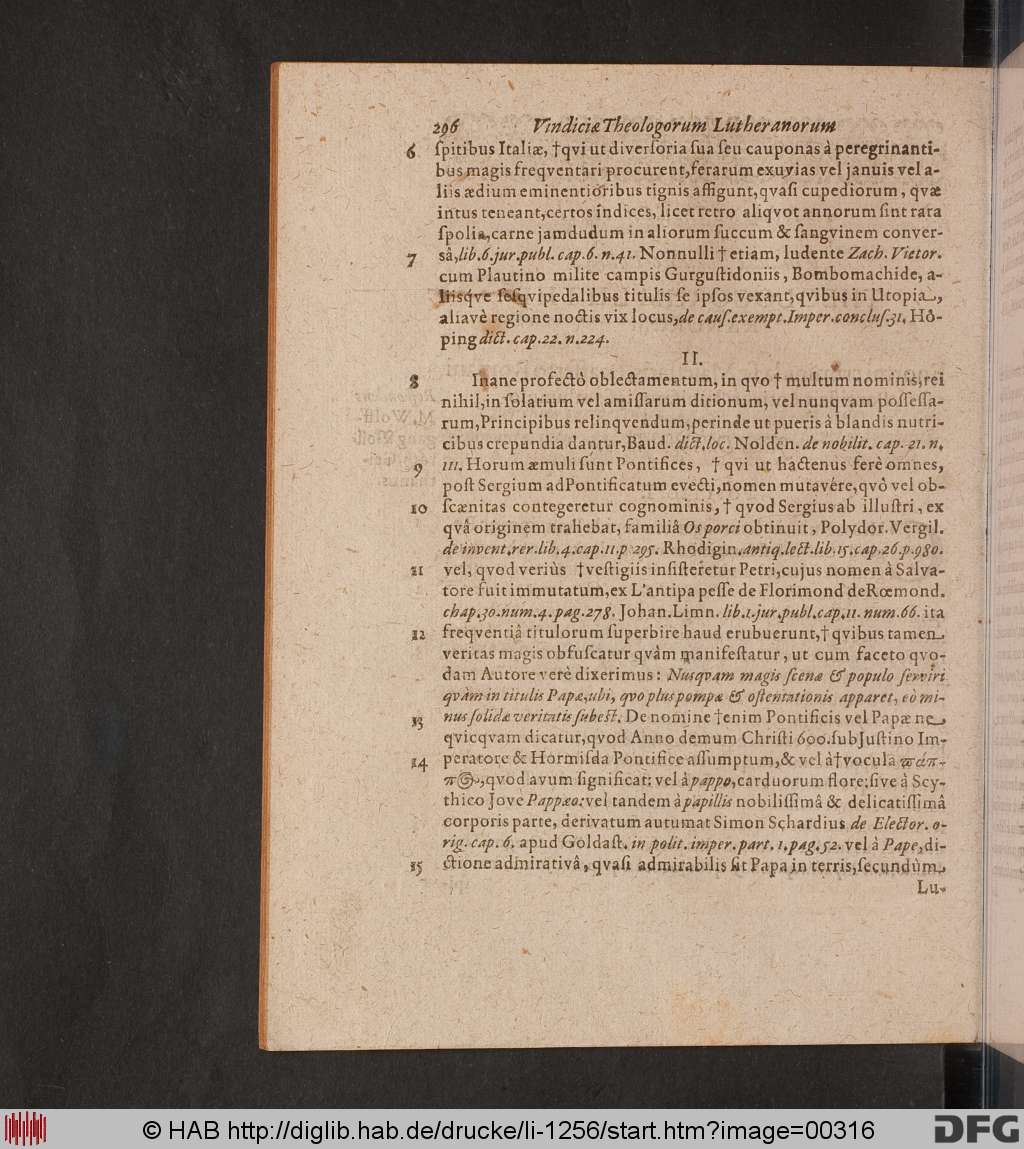 296 Vindiciæ Theologorum Lutheranorum
6 ſpitibus Italiæ, †qvi ut diverſoria ſua ſeu cauponas à peregrinanti-
bus magis freqventari procurent,ferarum exuvias vel januis vel a-
liis ædium eminentioribus tignis affigunt,qvaſi cupediorum, qvæ
intus teneant,certos indices, licet retro aliqvot annorum ſint rara
ſpolia,carne jamdudum in aliorum ſuccum & ſangvinem conver-
7 sâ,lib.6.jur.publ. cap.6. n.41. Nonnulli † etiam, ludente Zach. Vietor.
cum Plautino milite campis Gurguſtidoniis, Bombomachide, a-
liisq́ve ſeſqvipedalibus titulis ſe ipſos vexant,qvibus in Utopia,
aliavè regione noctis vix locus,de cauſ.exempt.Imper.concluſ.31. Hô-
ping dict. cap.22. n.224.
II.
8 Inane profectò oblectamentum, in qvo † multum nominis,rei
nihil,in ſolatium vel amiſſarum ditionum, vel nunqvam poſſeſſa-
rum,Principibus relinqvendum,perinde ut pueris à blandis nutri-
cibus crepundia dantur,Baud. dict.loc. Nolden. de nobilit. cap. 21. n.
9 111. Horum æmuli ſunt Pontifices, † qvi ut hactenus ferè omnes,
poſt Sergium adPontificatum evecti,nomen mutavére,qvô vel ob-
10 ſcænitas contegeretur cognominis, † qvod Sergius ab illuſtri, ex
qvâ originem trahebat, familiâ Os porci obtinuit, Polydor. Vergil.
de invent.rer.lib.4.cap.11.p 295. Rhodigin.antiq.lect.lib.15.cap.26.p.980.
11 vel, qvod veriùs †veſtigiis inſiſteretur Petri,cujus nomen à Salva-
tore fuit immutatum,ex L'antipapeſſe de Florimond deRœmond.
chap.30.num.4.pag.278. Johan.Limn. lib.1.jur.publ.cap.11. num.66. ita
12 freqventiâ titulorum ſuperbire haud erubuerunt,† qvibus tamen
veritas magis obfuſcatur qvàm manifeſtatur, ut cum faceto qvo-
dam Autore verè dixerimus: Nusqvam magis ſcenæ & populo ſerviri
qvàm in titulis Papæ,ubi, qvo plus pompæ & oſtentationis apparet, eò mi-
13 nus ſolidæ veritatis ſubeſt. De nomine †enim Pontificis vel Papæ ne
qvicqvam dicatur,qvod Anno demum Chriſti 600.ſub Juſtino Im-
14 peratore & Hormiſda Pontifice aſſumptum,& vel à†vocula πάπ-
π⊙,qvod avum ſignificat: vel à pappo,carduorum flore:ſive à Scy-
thico Jove Pappæo:vel tandem à papillis nobiliſſimâ & delicatiſſimâ
corporis parte, derivatum autumat Simon Schardius de Elector. o-
rig. cap. 6. apud Goldaſt. in polit. imper. part. 1. pag. 52. vel à Pape,di-
15 ctione admirativâ, qvaſi admirabilis ſit Papa in terris,ſecundùm
Lu-
© HAB http://diglib.hab.de/drucke/li-1256/start.htm?image=00316
DFG